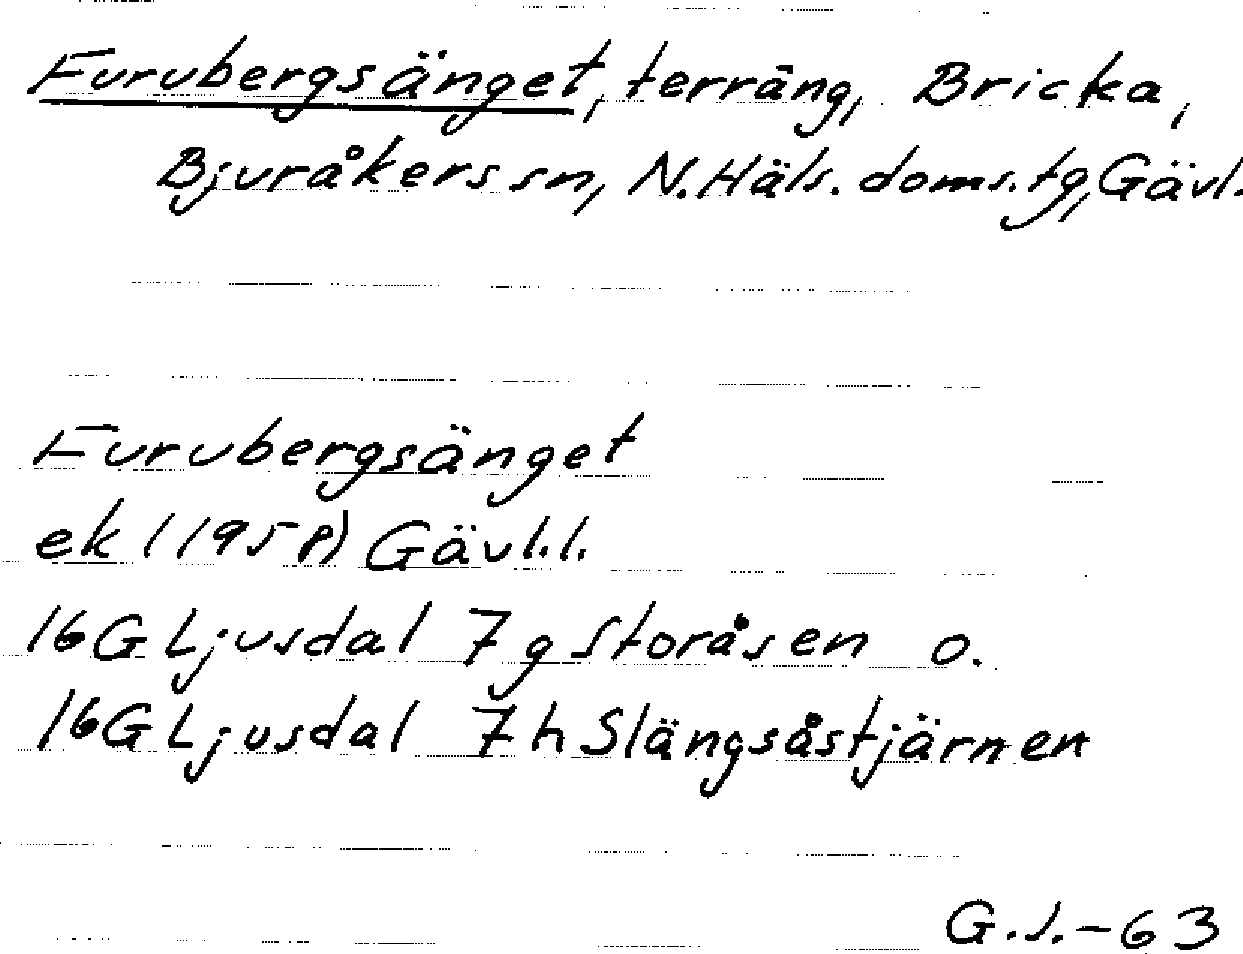 Furubergsänget, terräng, Bricka,
Bjuråkers sn, N. Häls. doms. tg, Gävl.
Furubergsänget
ek (1958) Gävl. l.
16G Ljusdal 7g Storåsen o.
16G Ljusdal 7h Slängsåstjärnen
G.J.-63